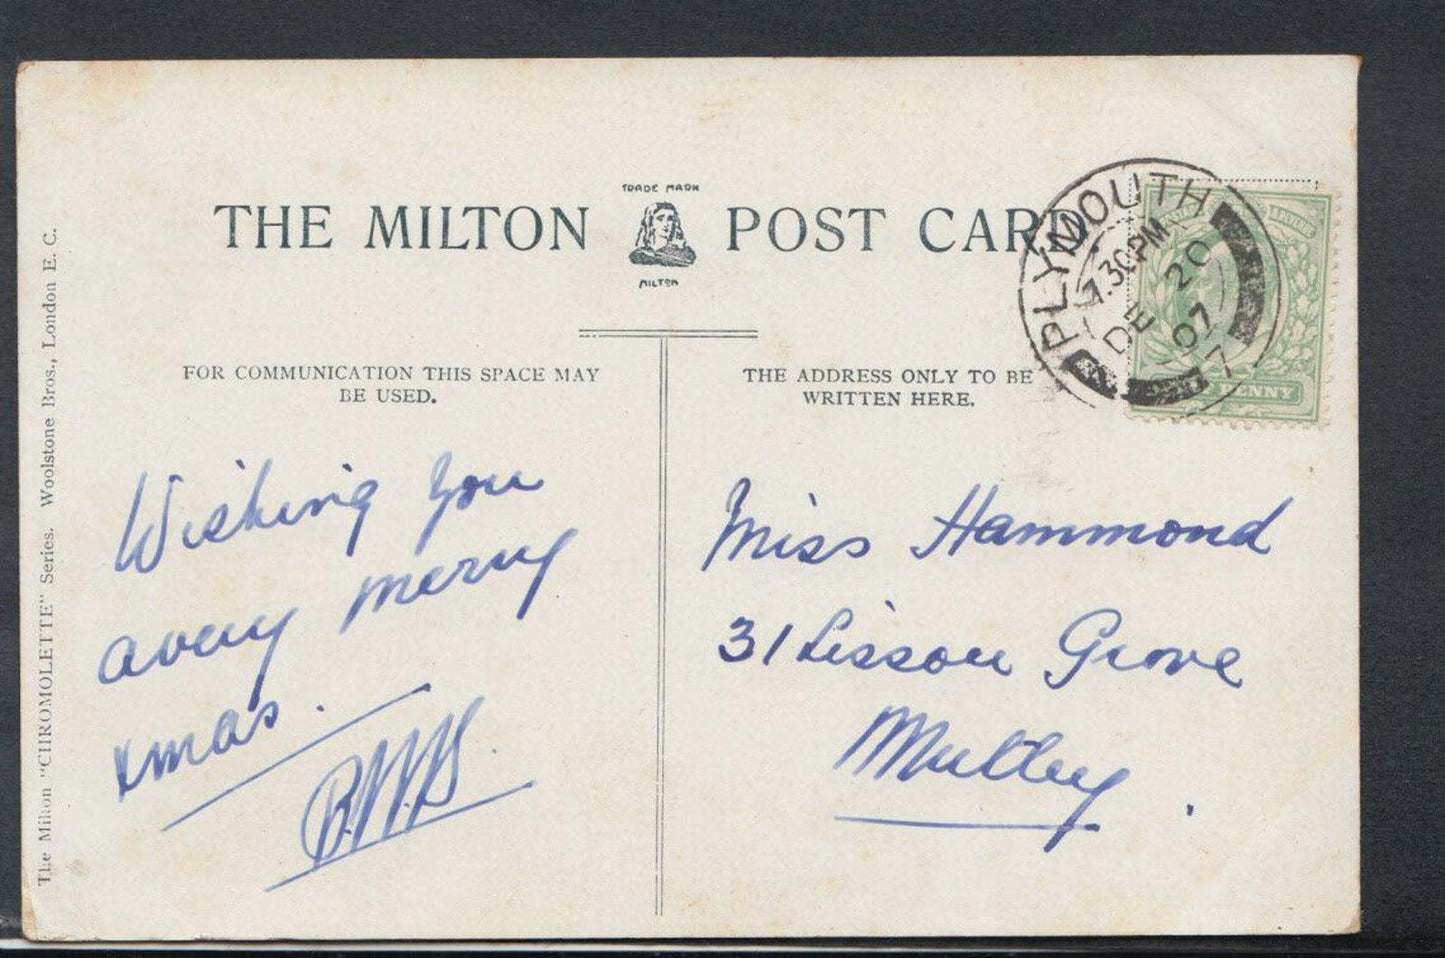 TRADE MARK
THE MILTON POST CARD
MILTON
FOR COMMUNICATION THIS SPACE MAY
BE USED.
THE ADDRESS ONLY TO BE
WRITTEN HERE.
PLYMOUTH
7.30PM
DE 20
07
7
PENNY
Wishing you
a very merry
xmas.
Miss Hammond
31 Lisson Grove
Mutley.
The Milton "CHROMOLETTE" Series. Woolstone Bros., London E. C.